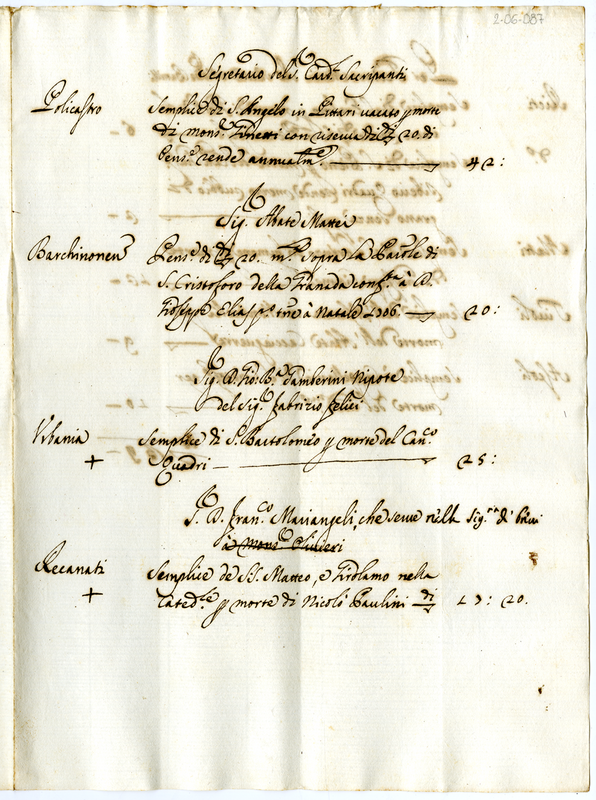 2-06-087
Segretario del S. Card. Sacripanti
Policastro
Semplice di S. Angelo in Pittari vacato p morte
di mons. con riserva di 20. di
Pens.e rende annualm.e 42:
Sig. Abate Mattei
Barchinonen
Pens.e di 20. m.ta sopra la Paro.le di
S. Cristoforo della Granada conf.ta à D.
Gioseppe Elias p.o tre à Natale 1706. 20:
Sig. D. Gio: B.a Tamberini Nipote
del Sig. Fabrizio Felici
Urbania
Semplice di S. Bartolomeo p morte del Can.co
+ Quadri 25:
S. D. Fran.co Mariangeli, che serve nella Sig.ra di
à Mons.
Recanati
Semplice de SS. Matteo, e Girolamo nella
+ Cated.le p morte di Nicolò Paulini di 13: 20.